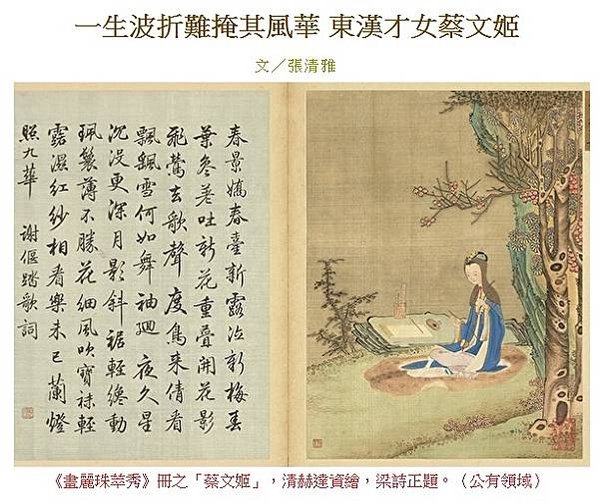 一生波折難掩其風華 東漢才女蔡文姬
文／張清雅
春景嬌春臺新露泣新梅春
葉參差吐新花重疊開花影
飛鶯去歌聲度鳥來倩看
飄颻雪何如舞袖迴夜久星
沉沒更深月影斜裙輕纔動
珮鬟薄不勝花細風吹寶袜輕
露濕紅紗相看樂未已蘭燈
照九華 謝偃踏歌詞
《畫麗珠萃秀》冊之「蔡文姬」，清赫達資繪，梁詩正題。（公有領域）